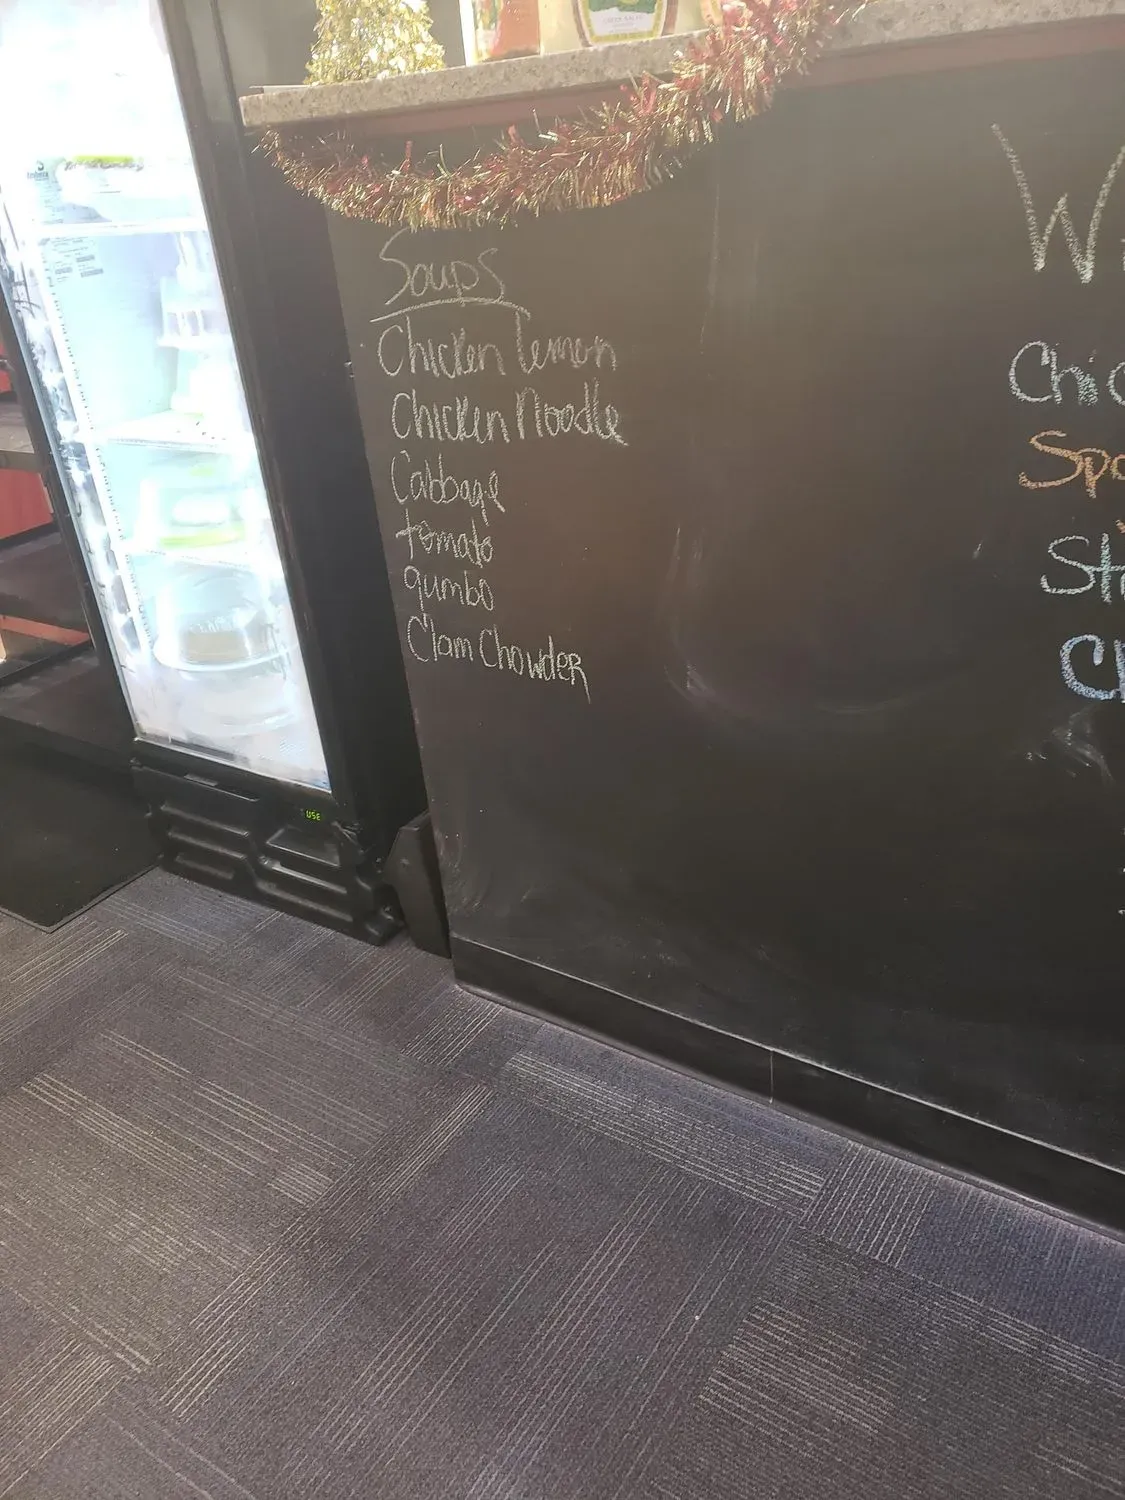 Soups
Chicken lemon
Chicken Noodle
Cabbage
tomato
gumbo
Clam Chowder
W
Chic
Sp
St
Ch